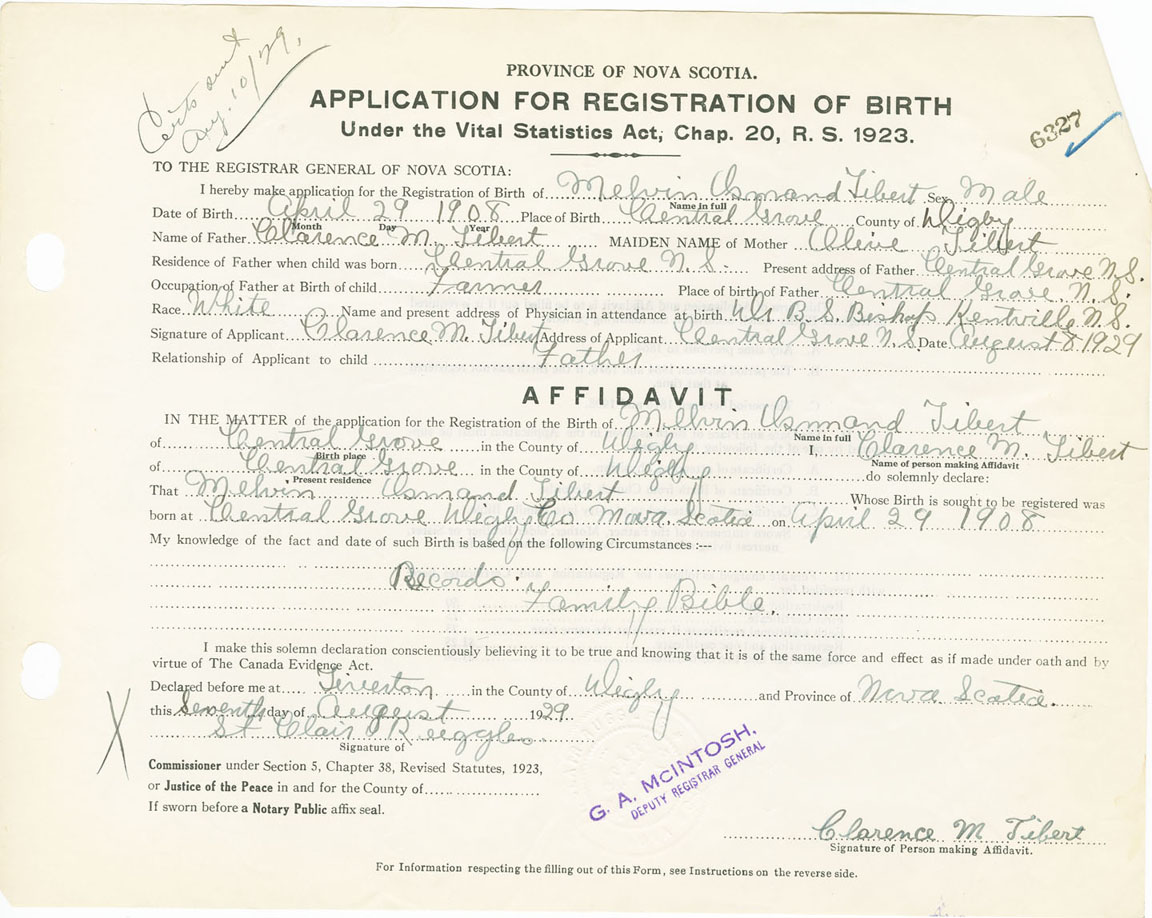 Cert. sent
Aug. 10/29.
PROVINCE OF NOVA SCOTIA.
APPLICATION FOR REGISTRATION OF BIRTH
Under the Vital Statistics Act, Chap. 20, R. S. 1923.
6327
TO THE REGISTRAR GENERAL OF NOVA SCOTIA:
I hereby make application for the Registration of Birth of Melvin Osmand Tibert Sex Male
Name in full
Date of Birth April 29 1908 Place of Birth Central Grove County of Digby
Month Day Year
Name of Father Clarence M. Tibert MAIDEN NAME of Mother Olive Tibert
Residence of Father when child was born Central Grove N.S. Present address of Father Central Grove N.S.
Occupation of Father at Birth of child Farmer Place of birth of Father Central Grove. N.S.
Race White Name and present address of Physician in attendance at birth Dr B. S. Bishop Kentville N.S.
Signature of Applicant Clarence M. Tibert Address of Applicant Central Grove N.S. Date August 8 1929
Relationship of Applicant to child Father
AFFIDAVIT.
IN THE MATTER of the application for the Registration of the Birth of Melvin Osmand Tibert
Name in full
of Central Grove in the County of Digby I, Clarence M. Tibert
Birth place Name of person making Affidavit
of Central Grove in the County of Digby do solemnly declare:
Present residence
That Melvin Osmand Tibert Whose Birth is sought to be registered was
born at Central Grove Digby Co Nova Scotia on April 29 1908
My knowledge of the fact and date of such Birth is based on the following Circumstances :---
Records
Family Bible.
I make this solemn declaration conscientiously believing it to be true and knowing that it is of the same force and effect as if made under oath and by
virtue of The Canada Evidence Act.
Declared before me at Tiverton in the County of Digby and Province of Nova Scotia.
this Seventh day of August 1929.
St Clair Ruggles
Signature of
Commissioner under Section 5, Chapter 38, Revised Statutes, 1923,
or Justice of the Peace in and for the County of
If sworn before a Notary Public affix seal.
G. A. McINTOSH.
DEPUTY REGISTRAR GENERAL
Clarence M Tibert
Signature of Person making Affidavit.
For Information respecting the filling out of this Form, see Instructions on the reverse side.